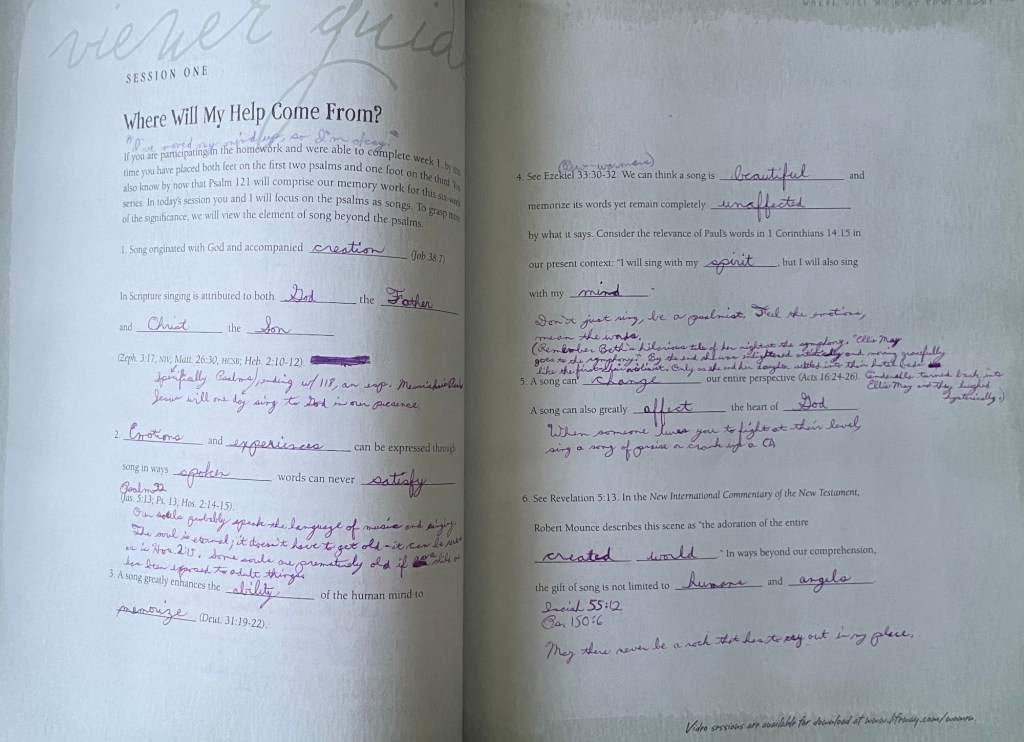 viewer guid
SESSION ONE
Where Will My Help Come From?
"I've moved my mind up, so I'm okay."
If you are participating in the homework and were able to complete week 1, by this
time you have placed both feet on the first two psalms and one foot on the third. You
also know by now that Psalm 121 will comprise our memory work for this six-week
series. In today's session you and I will focus on the psalms as songs. To grasp more
of the significance, we will view the element of song beyond the psalms.
1. Song originated with God and accompanied creation (Job 38:7)
In Scripture singing is attributed to both God the Father
and Christ the Son
(Zeph. 3:17, NIV; Matt. 26:30, HCSB; Heb. 2:10-12)
specifically Psalms, ending w/ 118, an esp. Messianic
Jesus will one day sing to God in our presence
2. Emotions and experiences can be expressed through
song in ways spoken words can never satisfy
Psalm 32
(Jas. 5:13; Ps. 13; Hos. 2:14-15).
Our souls probably speak the language of music and singing.
The soul is eternal; it doesn't have to get old - it can be
as in Hos 2:15. Some souls are prematurely old if
has been exposed to adult things
3. A song greatly enhances the ability of the human mind to
memorize (Deut. 31:19-22).
4. See Ezekiel 33:30-32. We can think a song is beautiful and
memorize its words yet remain completely unaffected
by what it says. Consider the relevance of Paul's words in 1 Corinthians 14:15 in
our present context: "I will sing with my spirit, but I will also sing
with my mind."
Don't just sing, be a psalmist. Feel the emotions,
mean the words.
(Remember Beth's hilarious tale of her night at the symphony. "Ellie May
goes to the symphony". By the end she was enlightened and moving gracefully
like the first chair violinist. Only as she and her daughter settled into their hotel beds
5. A song can change our entire perspective (Acts 16:24-26).
Cinderella turned back into
Ellie May and they laughed
hysterically :)
A song can also greatly affect the heart of God
When someone lures you to fight at their level
sing a song of praise or crank up a CD
6. See Revelation 5:13. In the New International Commentary of the New Testament,
Robert Mounce describes this scene as "the adoration of the entire
created world." In ways beyond our comprehension,
the gift of song is not limited to humans and angels
Isaiah 55:12
Ps. 150:6
May there never be a rock that has to cry out in my place.
Video sessions are available for download at www.lifeway.com/women.